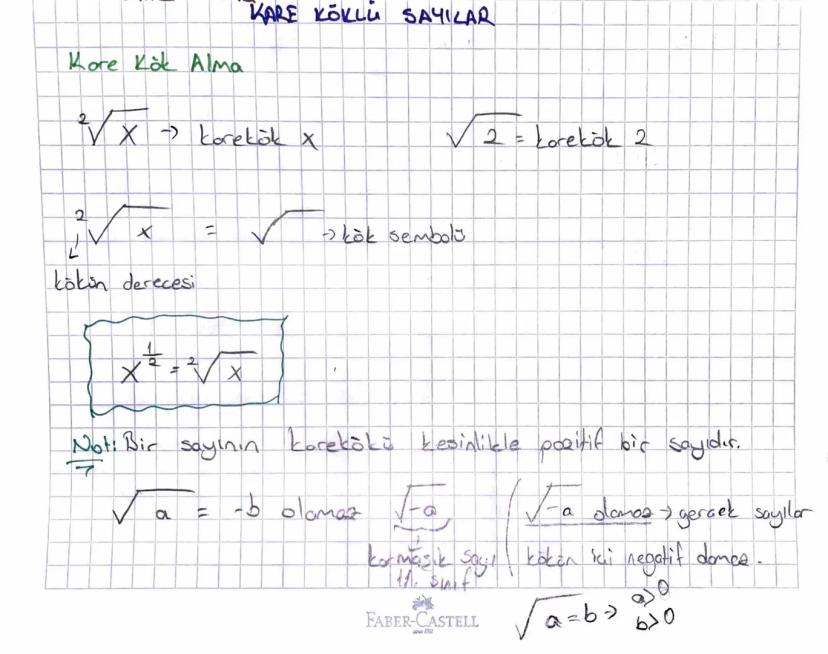 KARE KÖKLÜ SAYILAR
Kare Kök Alma
²√x → karekök x √2 = karekök 2
²√x = √ → kök sembolü
kökün derecesi
x^(1/2) = ²√x
Not: Bir sayının karekökü kesinlikle pozitif bir sayıdır.
√a = -b olamaz √-a √-a olamaz → gerçek sayılar
karmaşık sayı kökün içi negatif olamaz.
11. sınıf
FABER-CASTELL
since 1761
√a = b → a>0
b>0